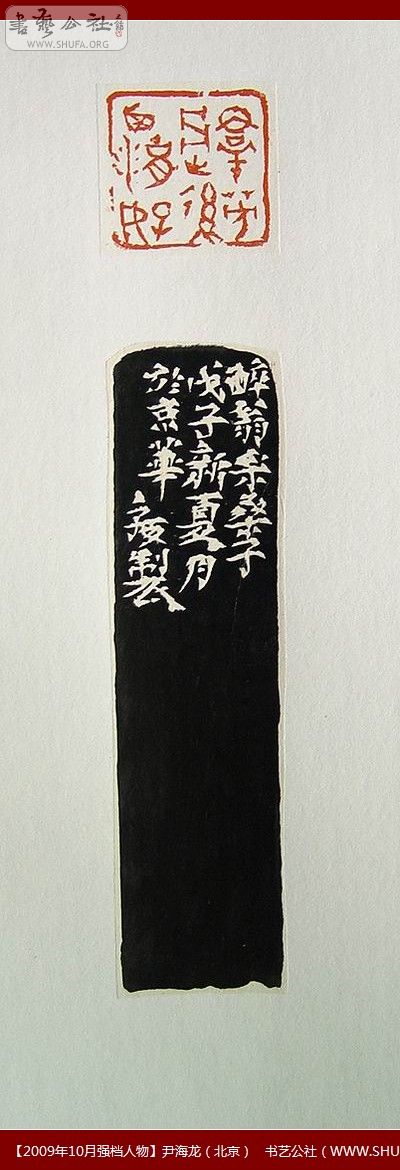 書藝公社
www.SHUFA.ORG
羣芳
過後
西湖好
醉翁采桑子
戊子新夏月
於京華
製
【2009年10月强档人物】尹海龙（北京） 书艺公社（WWW.SHU